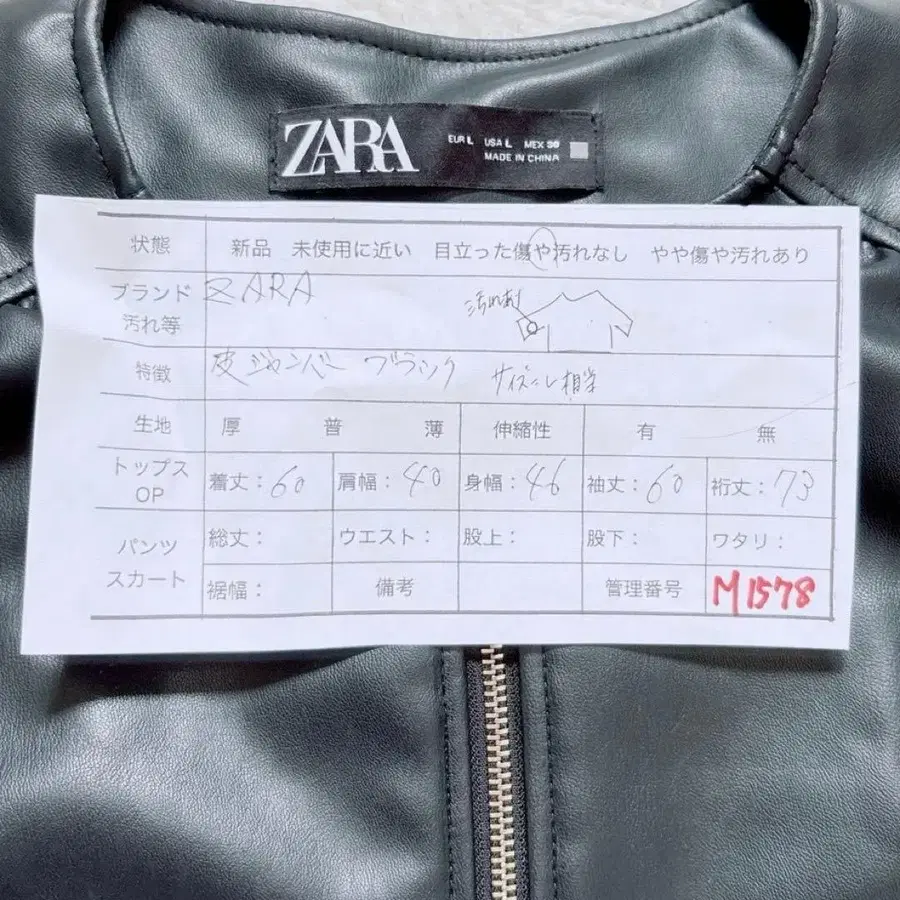 ZARA
EUR L USA L MEX 30
MADE IN CHINA
状態 新品 未使用に近い 目立った傷や汚れなし やや傷や汚れあり
ブランド 汚れ等 ZARA 汚れあり
特徴 皮ジャンバー ブラック サイズL相当
生地 厚 普 薄 伸縮性 有 無
トップス OP 着丈:60 肩幅:40 身幅:46 袖丈:60 裄丈:73
パンツ スカート 総丈: ウエスト: 股上: 股下: ワタリ:
裾幅: 備考 管理番号 M1578